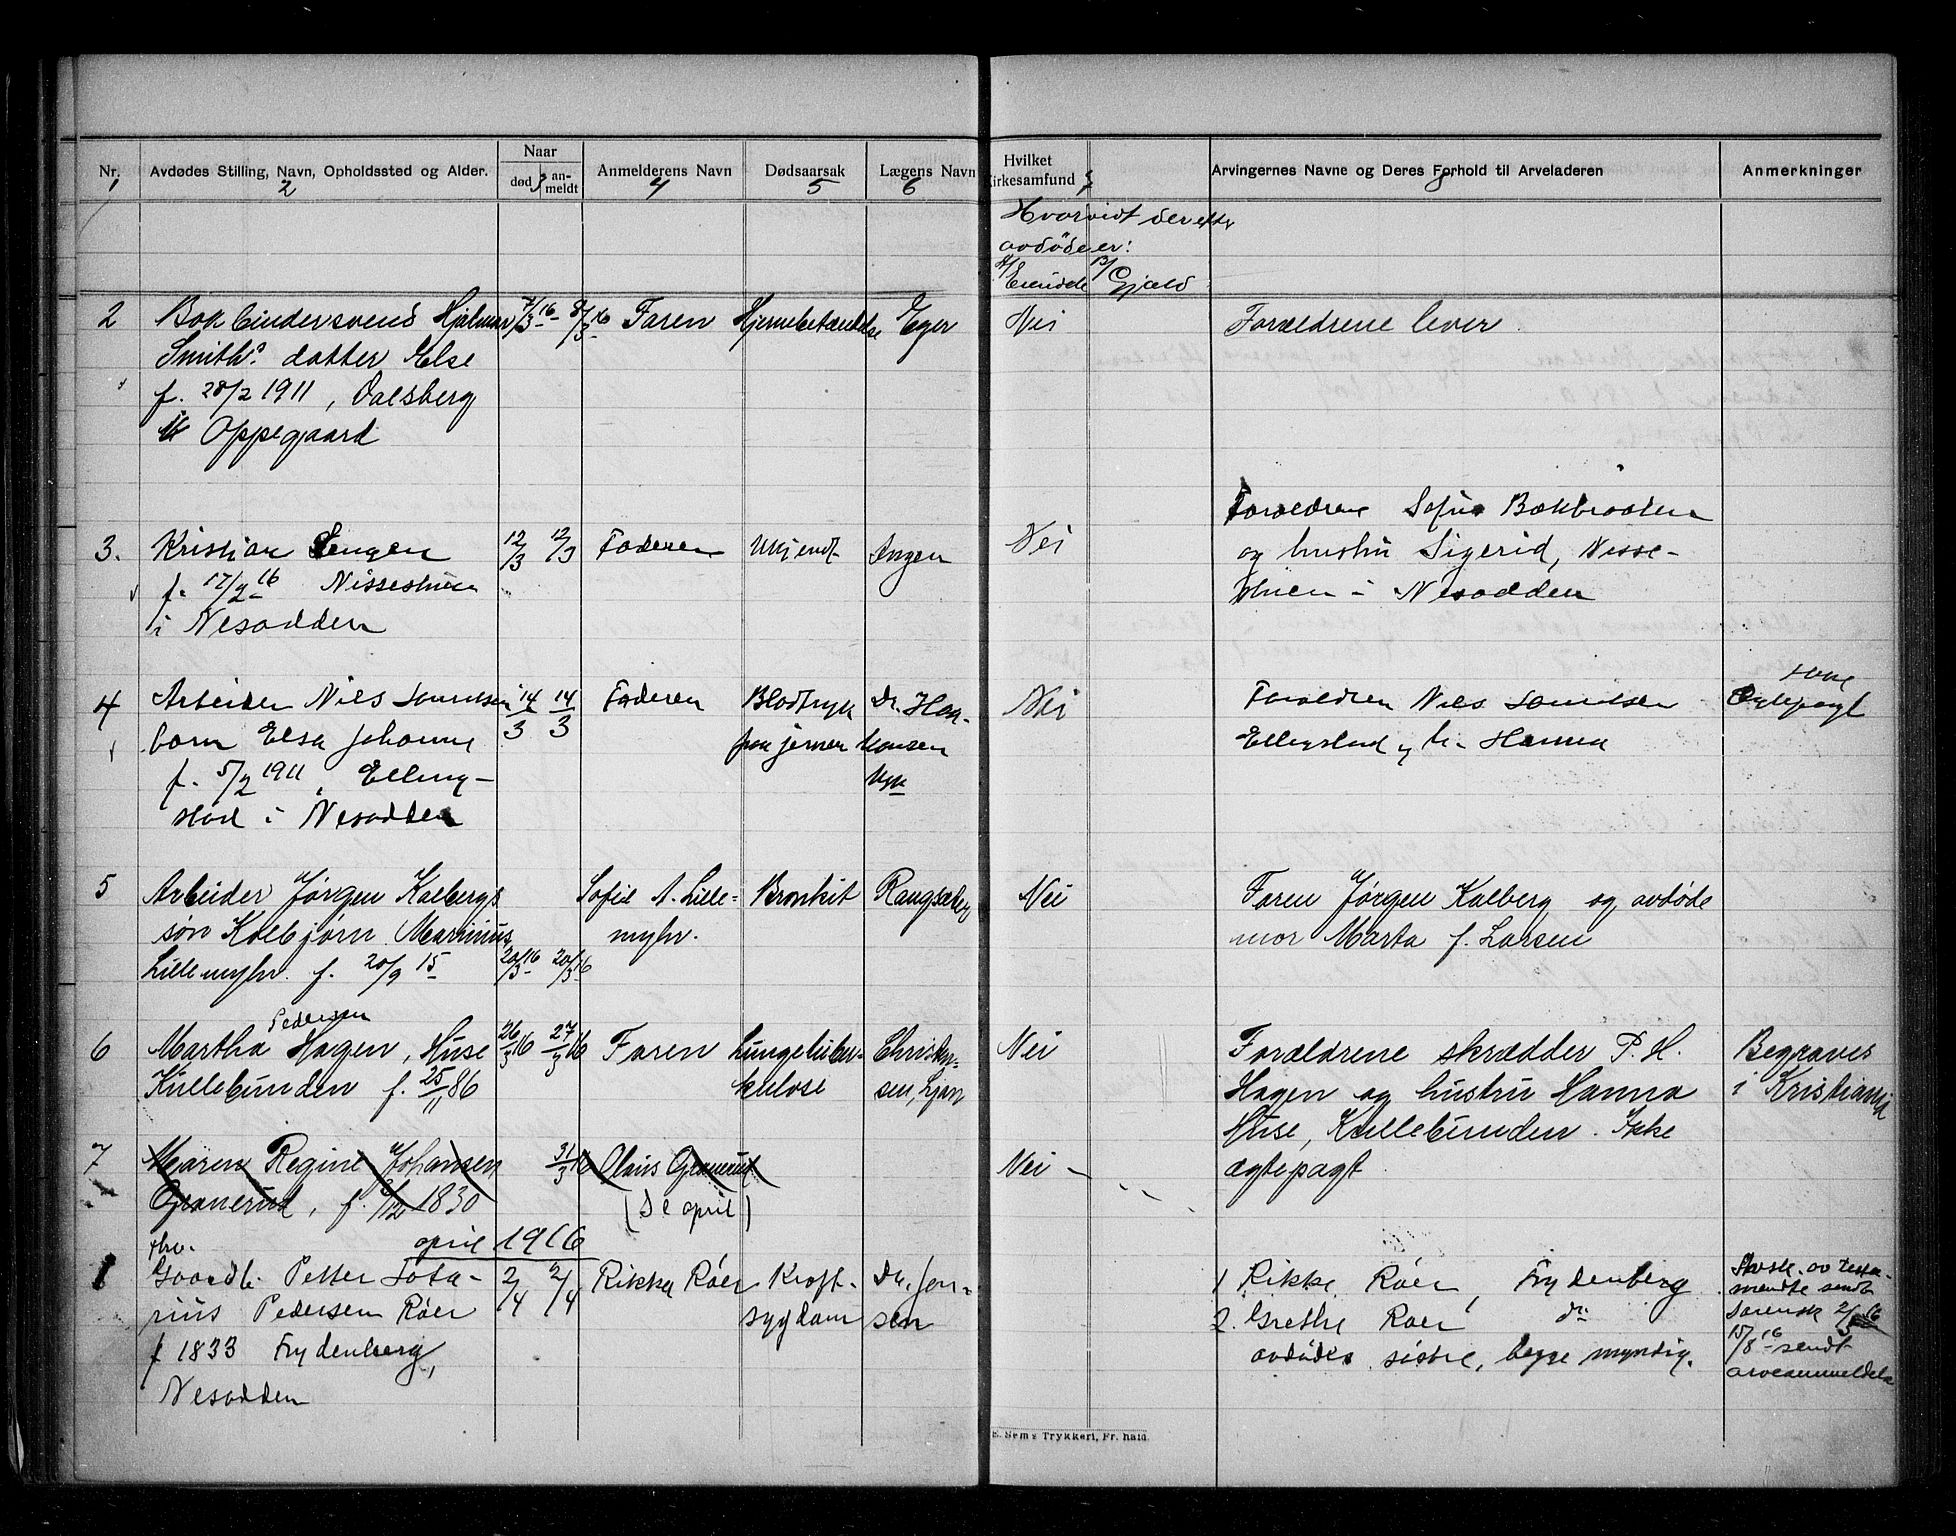 Nr. Avdødes Stilling, Navn, Opholdssted og Alder. Naar Anmelderens Navn Dødsaarsak Lægens Navn
død an-meldt
1 2 3 4 5 6
Hvilket
irkesamfund Arvingernes Navne og Deres Forhold til Arveladeren Anmerkninger
7 8
Hvorvidt der efter
avdöde er:
a/ Eiendele b/ Gjæld
2 Bokbindersvend Hjalmar 7/3 16 8/3 16 Faren Hjernebetændelse Eger Nei Forældrene lever
Smiths datter Else
f. 28/2 1911,
Oppegaard
Forældrene Bækbraaten
3. Kristian 12/3 12/3 Faderen Ukjendt Ingen Nei og hustru Sigerid, Nisse-
f. 17/2 16 Nissestuen stuen i Nesodden
i Nesodden
4 Arbeider Nils 14/3 14/3 Faderen Blodtryk Dr. Han- Nei Forældren Nils
barn Elsa Johanne paa jernen Hansen Ellingstad og h. Hanna
f. 5/2 1911, Elling- Ægtepagt
stad i Nesodden
5 Arbeider Jørgen Kalbergs Sofie A. Lille- Bronkit Nei Faren Jørgen Kalberg og avdøde
søn Kolbjørn Marinius myhr. mor Marta f. Larsen
Lillemyhr. f. 20/9 15 20/3 16 20/3 16
Pedersen
6 Martha Hagen, Huse 26/3 16 27/3 16 Faren Lungetuber- Christen- Nei Forældrene skrædder P. H. Begraves
Kullebunden f. 25/11 86 kulose sen, Ljan Hagen og hustru Hanna i Kristiania
Huse, Kullebunden. Ikke
7 Maren Regine Johansen 31/3 16 Olaus Granerud Nei ægtepagt
Granerud, f. /12 1830 (Se april)
april 1916
1 Gaardb. Petter 2/4 2/4 Rikka Røer Kræft- Dr. Jen- 1. Rikke Røer, Frydenberg
rius Pedersen Røer sygdom sen 2. Grethe Røer do
f 1833 Frydenberg, avdødes søstre, begge myndig.
Nesodden
av testa-
mente sendt
sorensk 2/5 16
15/8 16 sendt
arveanmeldelse
E. Sems Trykkeri, Fr.hald.